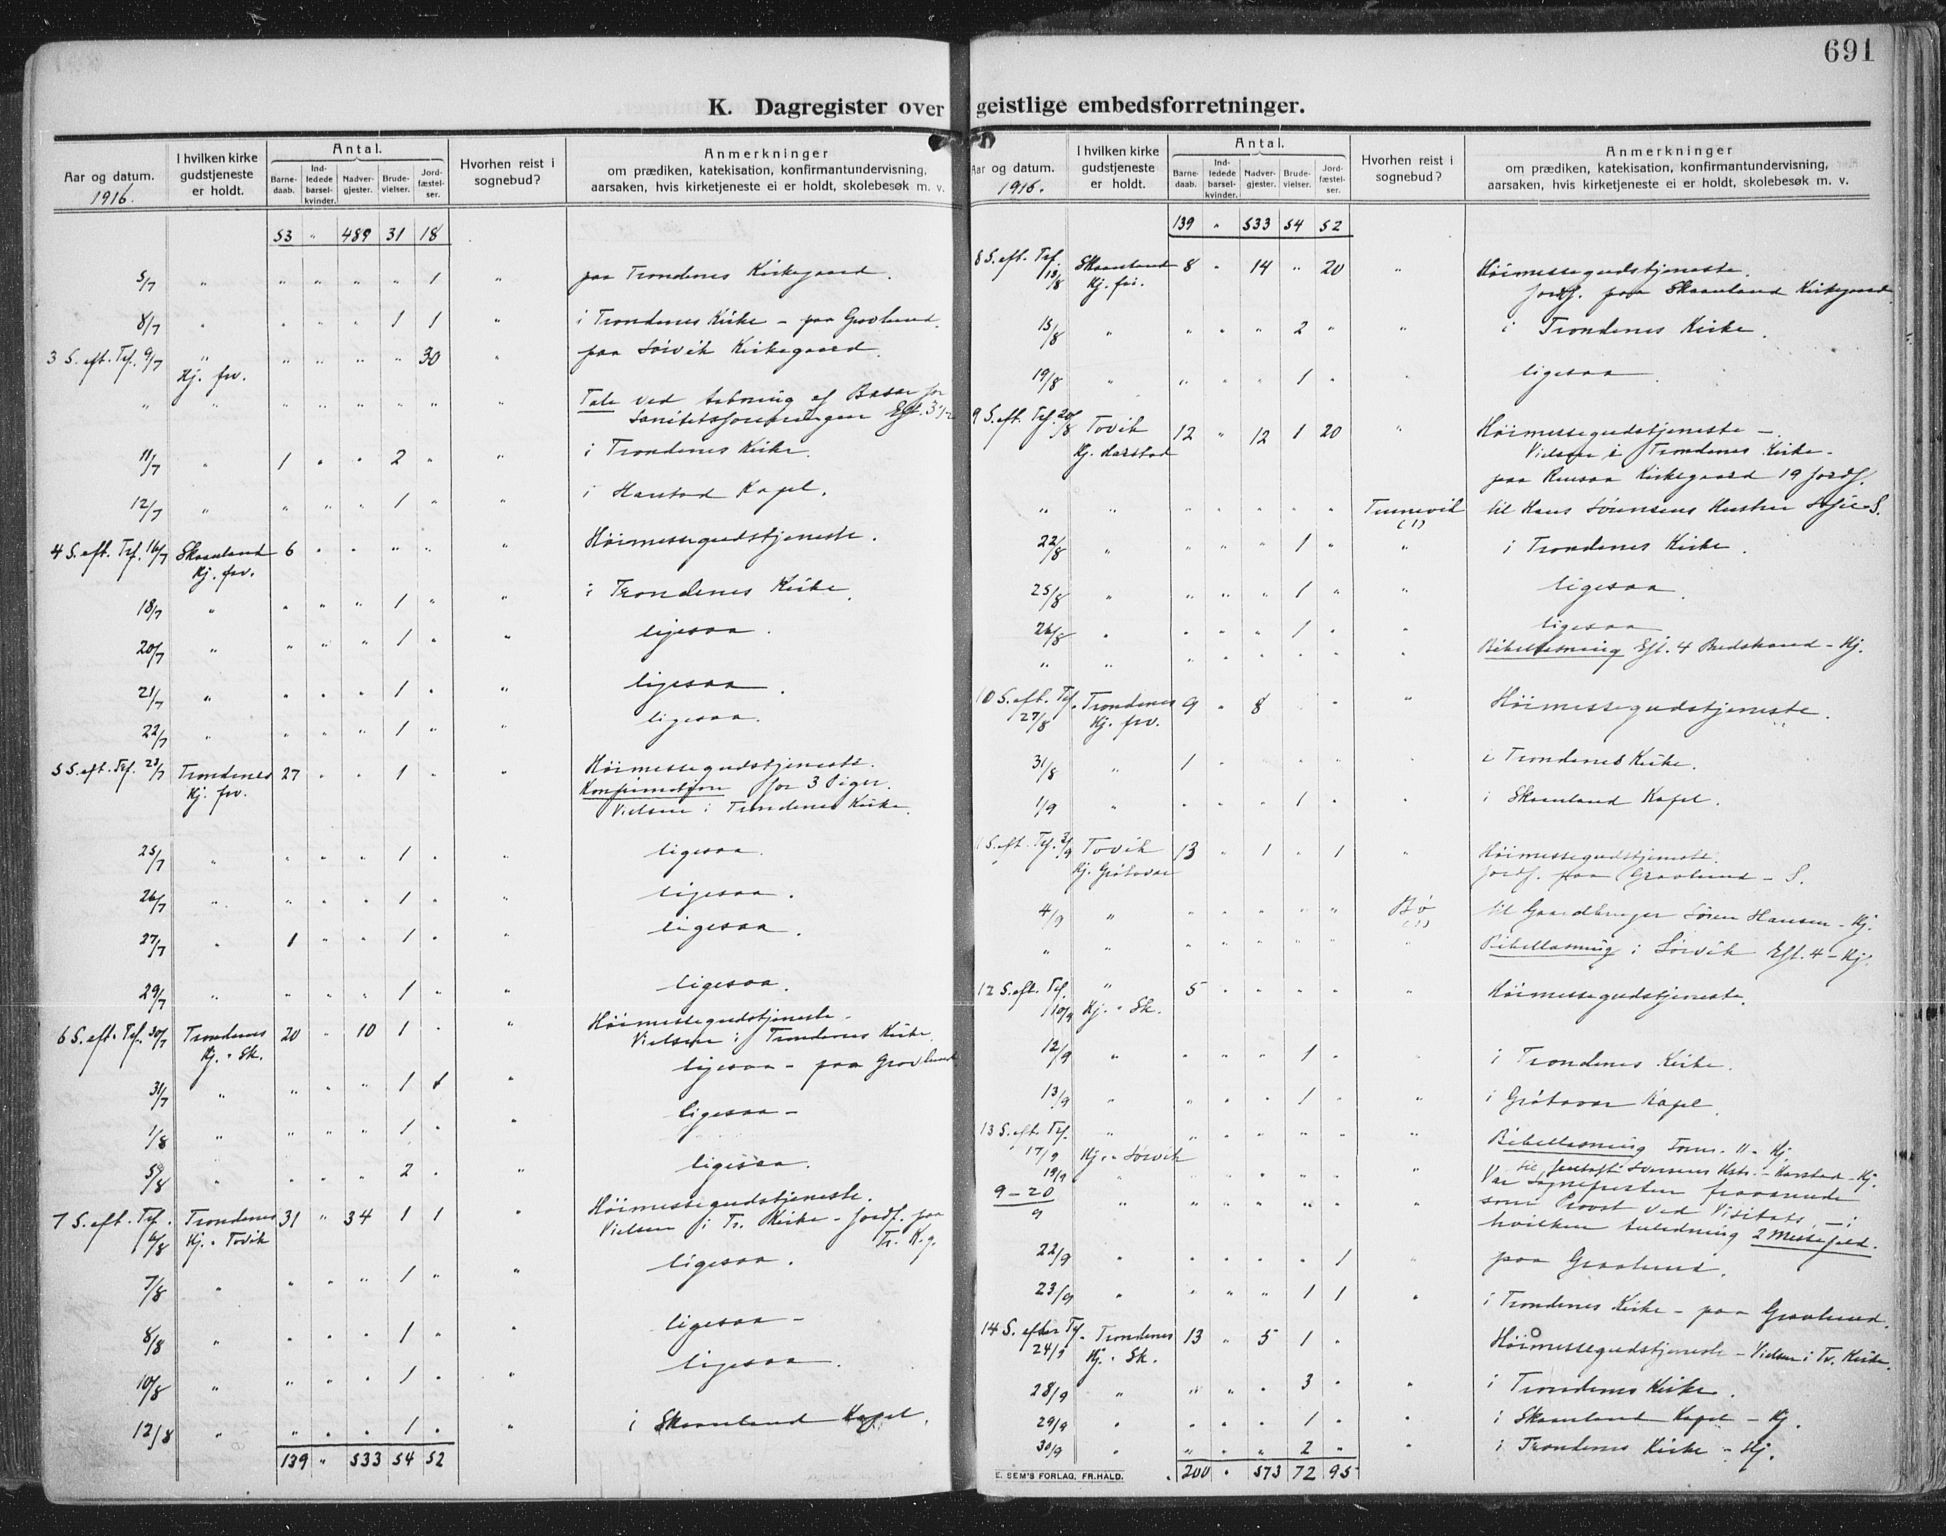 691
K. Dagregister over geistlige embedsforretninger.
Aar og datum.
1916.
I hvilken kirke gudstjeneste er holdt.
Antal.
Barne-daab.
Ind-ledede barsel-kvinder.
Nadver-gjester.
Brude-vielser.
Jord-fæstel-ser.
Hvorhen reist i sognebud?
Anmerkninger
om prædiken, katekisation, konfirmantundervisning,
aarsaken, hvis kirketjeneste ei er holdt, skolebesøk m. v.
53 " 489 31 18
5/7 " " " " " 1 " paa Trondenes Kirkegaard.
8/7 " " " " 1 1 " i Trondenes Kirke – paa Gravlund.
3 S. eft. Tref. 9/7 " " " " " 30 " paa Sørvik Kirkegaard.
Kj. frv.
" " " " " " " Tale ved aabning af Basar for
Sanitetsforeningen Eft. 3 1/2
11/7 " 1 " " 2 " " i Trondenes Kirke.
12/7 " " " " 1 " " i Harstad Kapel.
4 S. eft. Tref. 16/7 Skaanland 6 " " " " " Høimessegudstjeneste.
Kj. frv.
18/7 " " " " 1 " " i Trondenes Kirke.
20/7 " " " " 1 " " ligesaa.
21/7 " " " " 1 " " ligesaa.
22/7 " " " " 1 " " ligesaa.
5 S. eft. Tref. 23/7 Trondenes 27 " " 1 " " Høimessegudstjeneste.
Kj. frv. Konfirmation for 3 Piger.
Vielsen i Trondenes Kirke.
25/7 " " " " 1 " " ligesaa.
26/7 " " " " 1 " " ligesaa.
27/7 " 1 " " 1 " " ligesaa.
29/7 " " " " 1 " " ligesaa.
6 S. eft. Tref. 30/7 Trondenes 20 " 10 1 " " Høimessegudstjeneste –
Kj. " Sk. Vielsen i Trondenes Kirke.
31/7 " " " " 1 1 " ligesaa – paa Gravlund
1/8 " " " " 1 " " ligesaa –
5/8 " " " " 2 " " ligesaa.
7 S. eft. Tref. 6/8 Trondenes 31 " 34 1 1 " Høimessegudstjeneste.
Kj. " Tovik Vielsen i Tr. Kirke – Jordf. paa
Tr. K.g.
7/8 " " " " 1 " " ligesaa.
8/8 " " " " 1 " " ligesaa –
10/8 " " " " 1 " " ligesaa.
12/8 " " " " 1 " " i Skaanland Kapel.
139 " 533 54 52
Aar og datum.
1916.
I hvilken kirke gudstjeneste er holdt.
Antal.
Barne-daab.
Ind-ledede barsel-kvinder.
Nadver-gjester.
Brude-vielser.
Jord-fæstel-ser.
Hvorhen reist i sognebud?
Anmerkninger
om prædiken, katekisation, konfirmantundervisning,
aarsaken, hvis kirketjeneste ei er holdt, skolebesøk m. v.
139 " 533 54 52
8 S. eft. Tref. 13/8 Skaanland 8 " 14 " 20 " Høimessegudstjeneste.
Kj. fri. Jordf. paa Skaanland Kirkegaard.
15/8 " " " " 2 " " i Trondenes Kirke.
19/8 " " " " 1 " " ligesaa.
9 S. eft. Tref. 20/8 Tovik 12 " 12 1 20 " Høimessegudstjeneste –
Kj. Harstad Vielsen i Trondenes Kirke –
paa Rensaa Kirkegaard 19 Jordf.
" " " " " " " Tennevik (1) til Hans Sørensens Hustru – S.
22/8 " " " " 1 " " i Trondenes Kirke.
25/8 " " " " 1 " " ligesaa.
26/8 " " " " 1 " " ligesaa
" " " " " " " Bibellæsning Eft. 4 – Kj.
10 S. eft. Tref. 27/8 Trondenes 9 " 8 " " " Høimessegudstjeneste.
Kj. frv.
31/8 " 1 " " " " " i Trondenes Kirke.
1/9 " " " " 1 " " i Skaanland Kapel.
11 S. eft. Tref. 3/9 Tovik 13 " 1 " 1 " Høimessegudstjeneste.
Kj. Grøtavær Jordf. paa Gravlund – S.
4/9 " " " " " " Bø (1) til Gaardbruger Søren Hansen – Kj.
" " " " " " " Bibellæsning i Sørvik Eft. 4 – Kj.
12 S. eft. Tref. 10/9 " 5 " " " " " Høimessegudstjeneste.
Kj. " Sk.
12/9 " " " " 1 " " i Trondenes Kirke.
13/9 " " " " 1 " " i Grøtavær Kapel.
13 S. eft. Tref. 17/9 " " " " " " " Bibellæsning Form. 11 – Kj.
Kj. " Sørvik
19/9 " " " " " " til – Harstad – Kj.
9–20/9 " " " " " " " Var Sognepresten fraværende
som Provst ved Visitats, – i
hvilken anledning 2 Messefald.
22/9 " " " " " 1 " paa Gravlund.
23/9 " " " " 1 1 " i Trondenes Kirke – paa Gravlund.
14 S. efter Tref. 24/9 Trondenes 13 " 5 1 " " Høimessegudstjeneste – Vielsen i Tr. Kirke.
Kj. " Sk.
28/9 " " " " 3 " " i Trondenes Kirke.
29/9 " " " " 1 " " i Skaanland Kapel – Kj.
30/9 " " " " 2 " " i Trondenes Kirke – Kj.
200 " 573 72 95
E. SEM'S FORLAG, FR.HALD.